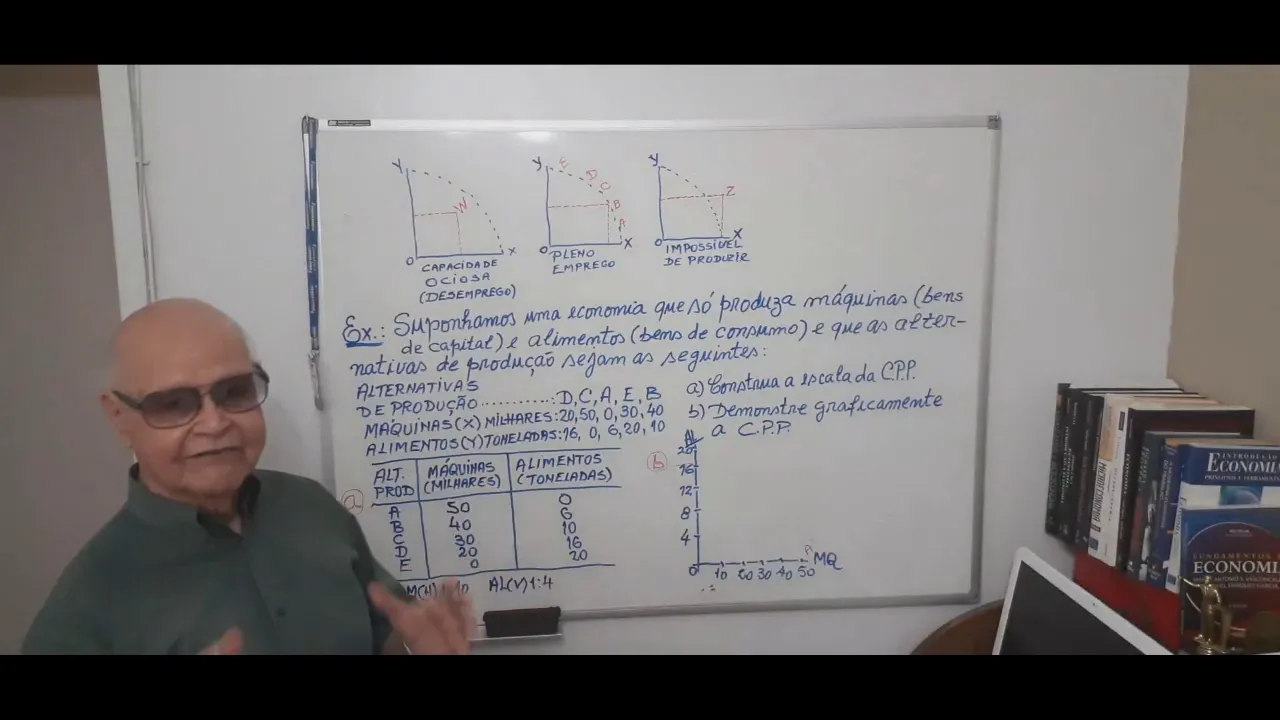 Y
W
O
X
CAPACIDADE
OCIOSA
(DESEMPREGO)
Y
E
D
C
B
A
O
X
PLENO
EMPREGO
Y
Z
O
X
IMPOSSÍVEL
DE PRODUZIR
Ex.: Suponhamos uma economia que só produza máquinas (bens
de capital) e alimentos (bens de consumo) e que as alter-
nativas de produção sejam as seguintes:
ALTERNATIVAS
DE PRODUÇÃO..........: D, C, A, E, B
MÁQUINAS (X) MILHARES: 20, 50, 0, 30, 40
ALIMENTOS (Y) TONELADAS: 16, 0, 6, 20, 10
a) Construa a escala da C.P.P.
b) Demonstre graficamente
a C.P.P.
a
ALT. PROD
MÁQUINAS (MILHARES)
ALIMENTOS (TONELADAS)
A 50 0
B 40 6
C 30 10
D 20 16
E 0 20
AL(V) 1:4
b
AL
20
16
12
8
4
0 10 20 30 40 50 MQ
INTRODUÇÃO
ECONOMIA
PRINCÍPIOS E FERRAMENTAS
FUNDAMENTOS
ECONOMIA
MICROECONOMIA